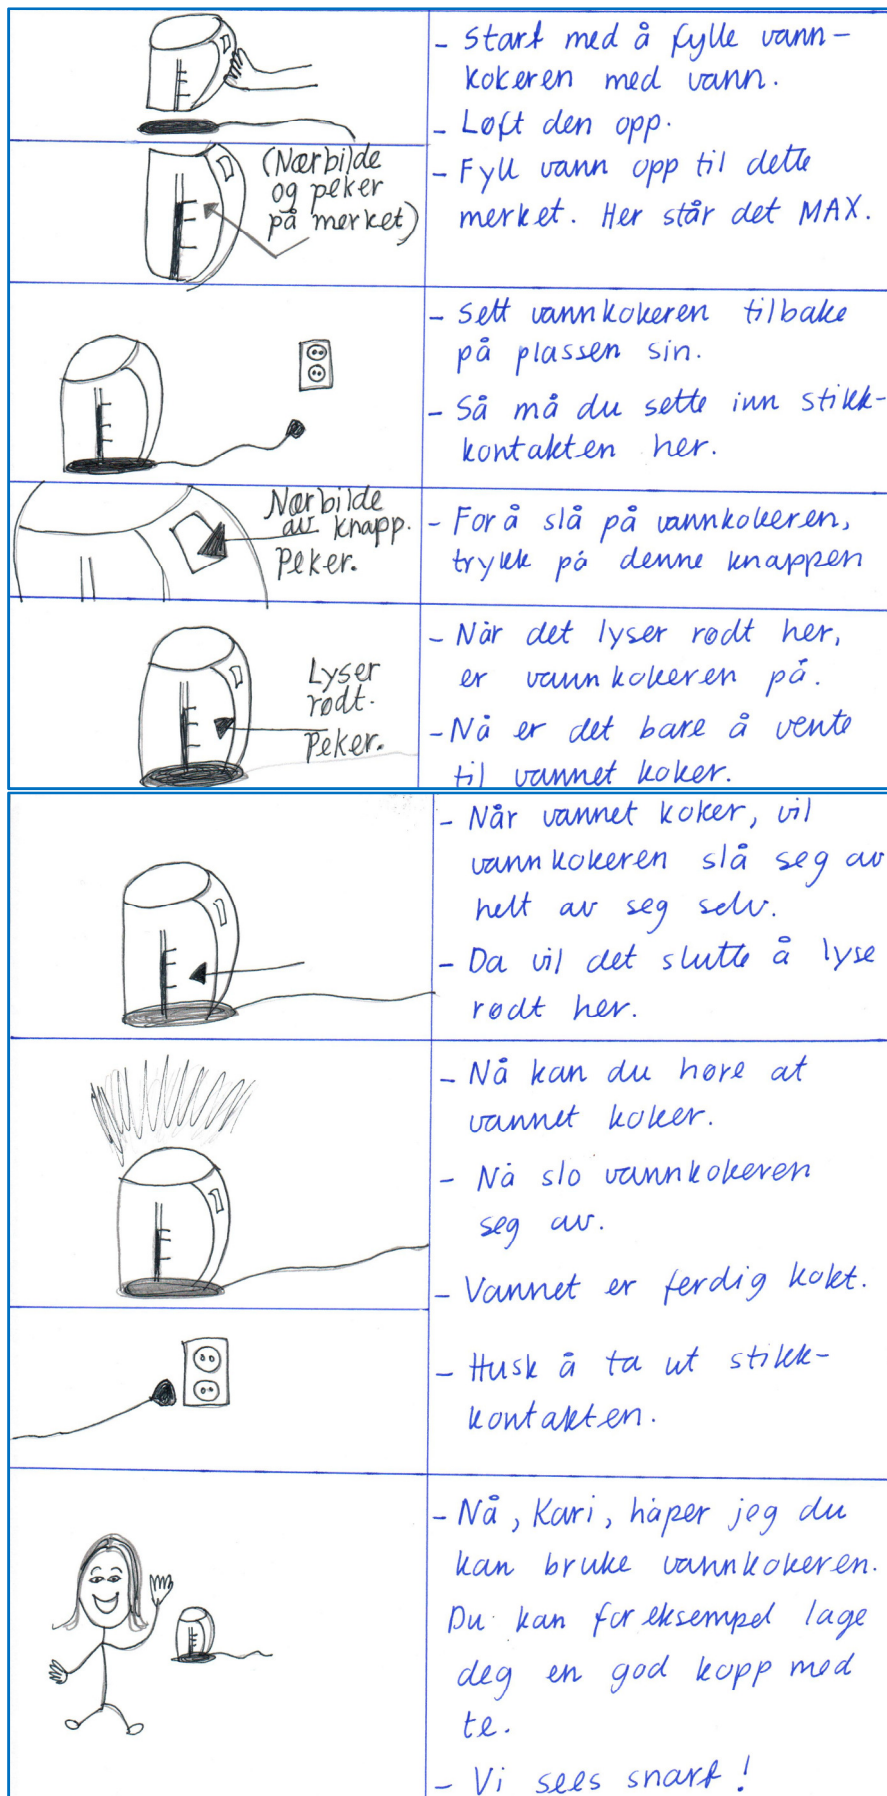 - Start med å fylle vann-
kokeren med vann.
- Løft den opp.
(Nærbilde
og peker
på merket)
- Fyll vann opp til dette
merket. Her står det MAX.
- Sett vannkokeren tilbake
på plassen sin.
- Så må du sette inn stikk-
kontakten her.
Nærbilde
av knapp.
Peker.
- For å slå på vannkokeren,
trykk på denne knappen
Lyser
rødt.
Peker.
- Når det lyser rødt her,
er vannkokeren på.
- Nå er det bare å vente
til vannet koker.
- Når vannet koker, vil
vannkokeren slå seg av
helt av seg selv.
- Da vil det slutte å lyse
rødt her.
- Nå kan du høre at
vannet koker.
- Nå slo vannkokeren
seg av.
- Vannet er ferdig kokt.
- Husk å ta ut stikk-
kontakten.
- Nå, Kari, håper jeg du
kan bruke vannkokeren.
Du kan for eksempel lage
deg en god kopp med
te.
- Vi sees snart!